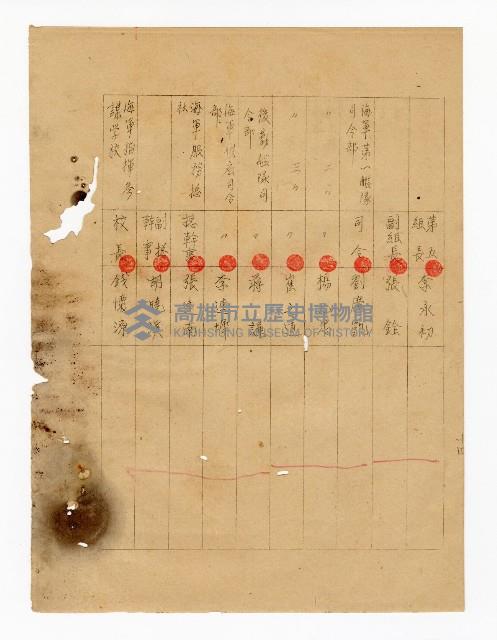 第五組長 余永初
副組長 張銓
海軍第一艦隊司令部 司令 劉
〃 二〃 〃 楊
〃 三〃 〃 崔
後勤艦隊司令部 〃 蔣 謙
海軍供應司令部 〃
海軍服務總社 總幹事 張
副總幹事 郭曉
海軍指揮參謀學校 校長 錢懷源
高雄市立歷史博物館
KAOHSIUNG MUSEUM OF HISTORY